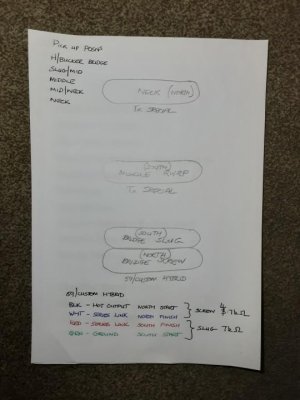 PICK UP POSNS
H/BUCKER BRIDGE
SLUG/MID
MIDDLE
MID/NECK
NECK
NECK (NORTH)
TX SPECIAL
(SOUTH)
MIDDLE RWRP
TX SPECIAL
(SOUTH)
BRIDGE SLUG
(NORTH)
BRIDGE SCREW
59/CUSTOM HYBRID
59/CUSTOM HYBRID
BLK - HOT OUTPUT NORTH START
WHT - SERIES LINK NORTH FINISH
SCREW
RED - SERIES LINK SOUTH FINISH
GRN - GROUND SOUTH START
SLUG 7kΩ